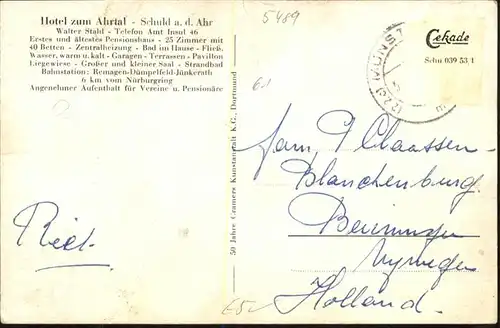 Hotel zum Ahrtal - Schuld a. d. Ahr
Walter Stahl - Telefon Amt Insul 46
Erstes und ältestes Pensionshaus - 25 Zimmer mit
40 Betten - Zentralheizung - Bad im Hause - Fließ.
Wasser, warm u. kalt - Garagen - Terrassen - Pavillon
Liegewiese - Großer und kleiner Saal - Strandbad
Bahnstation: Remagen-Dümpelfeld-Jünkerath
6 km vom Nürburgring
Angenehmer Aufenthalt für Vereine u. Pensionäre
5489
Cekade
Schu 039 53 1
(22c) MÜNST
6.-
50 Jahre Cramers Kunstanstalt K.G., Dortmund
Fam. Claassen -
Blanckenburg.
Beuningen
Nymegen
Holland.
Riet.
E5